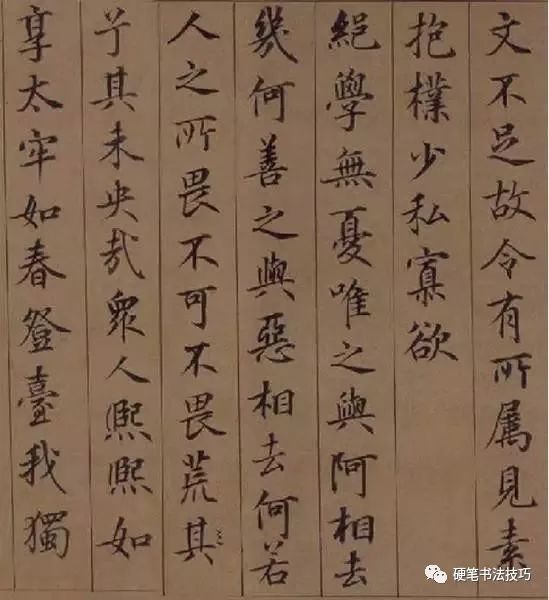 文不足故令有所屬見素
抱樸少私寡欲
絕學無憂唯之與阿相去
幾何善之與惡相去何若
人之所畏不可不畏荒其
兮其未央哉衆人熙熙如
享太牢如春登臺我獨
硬笔书法技巧